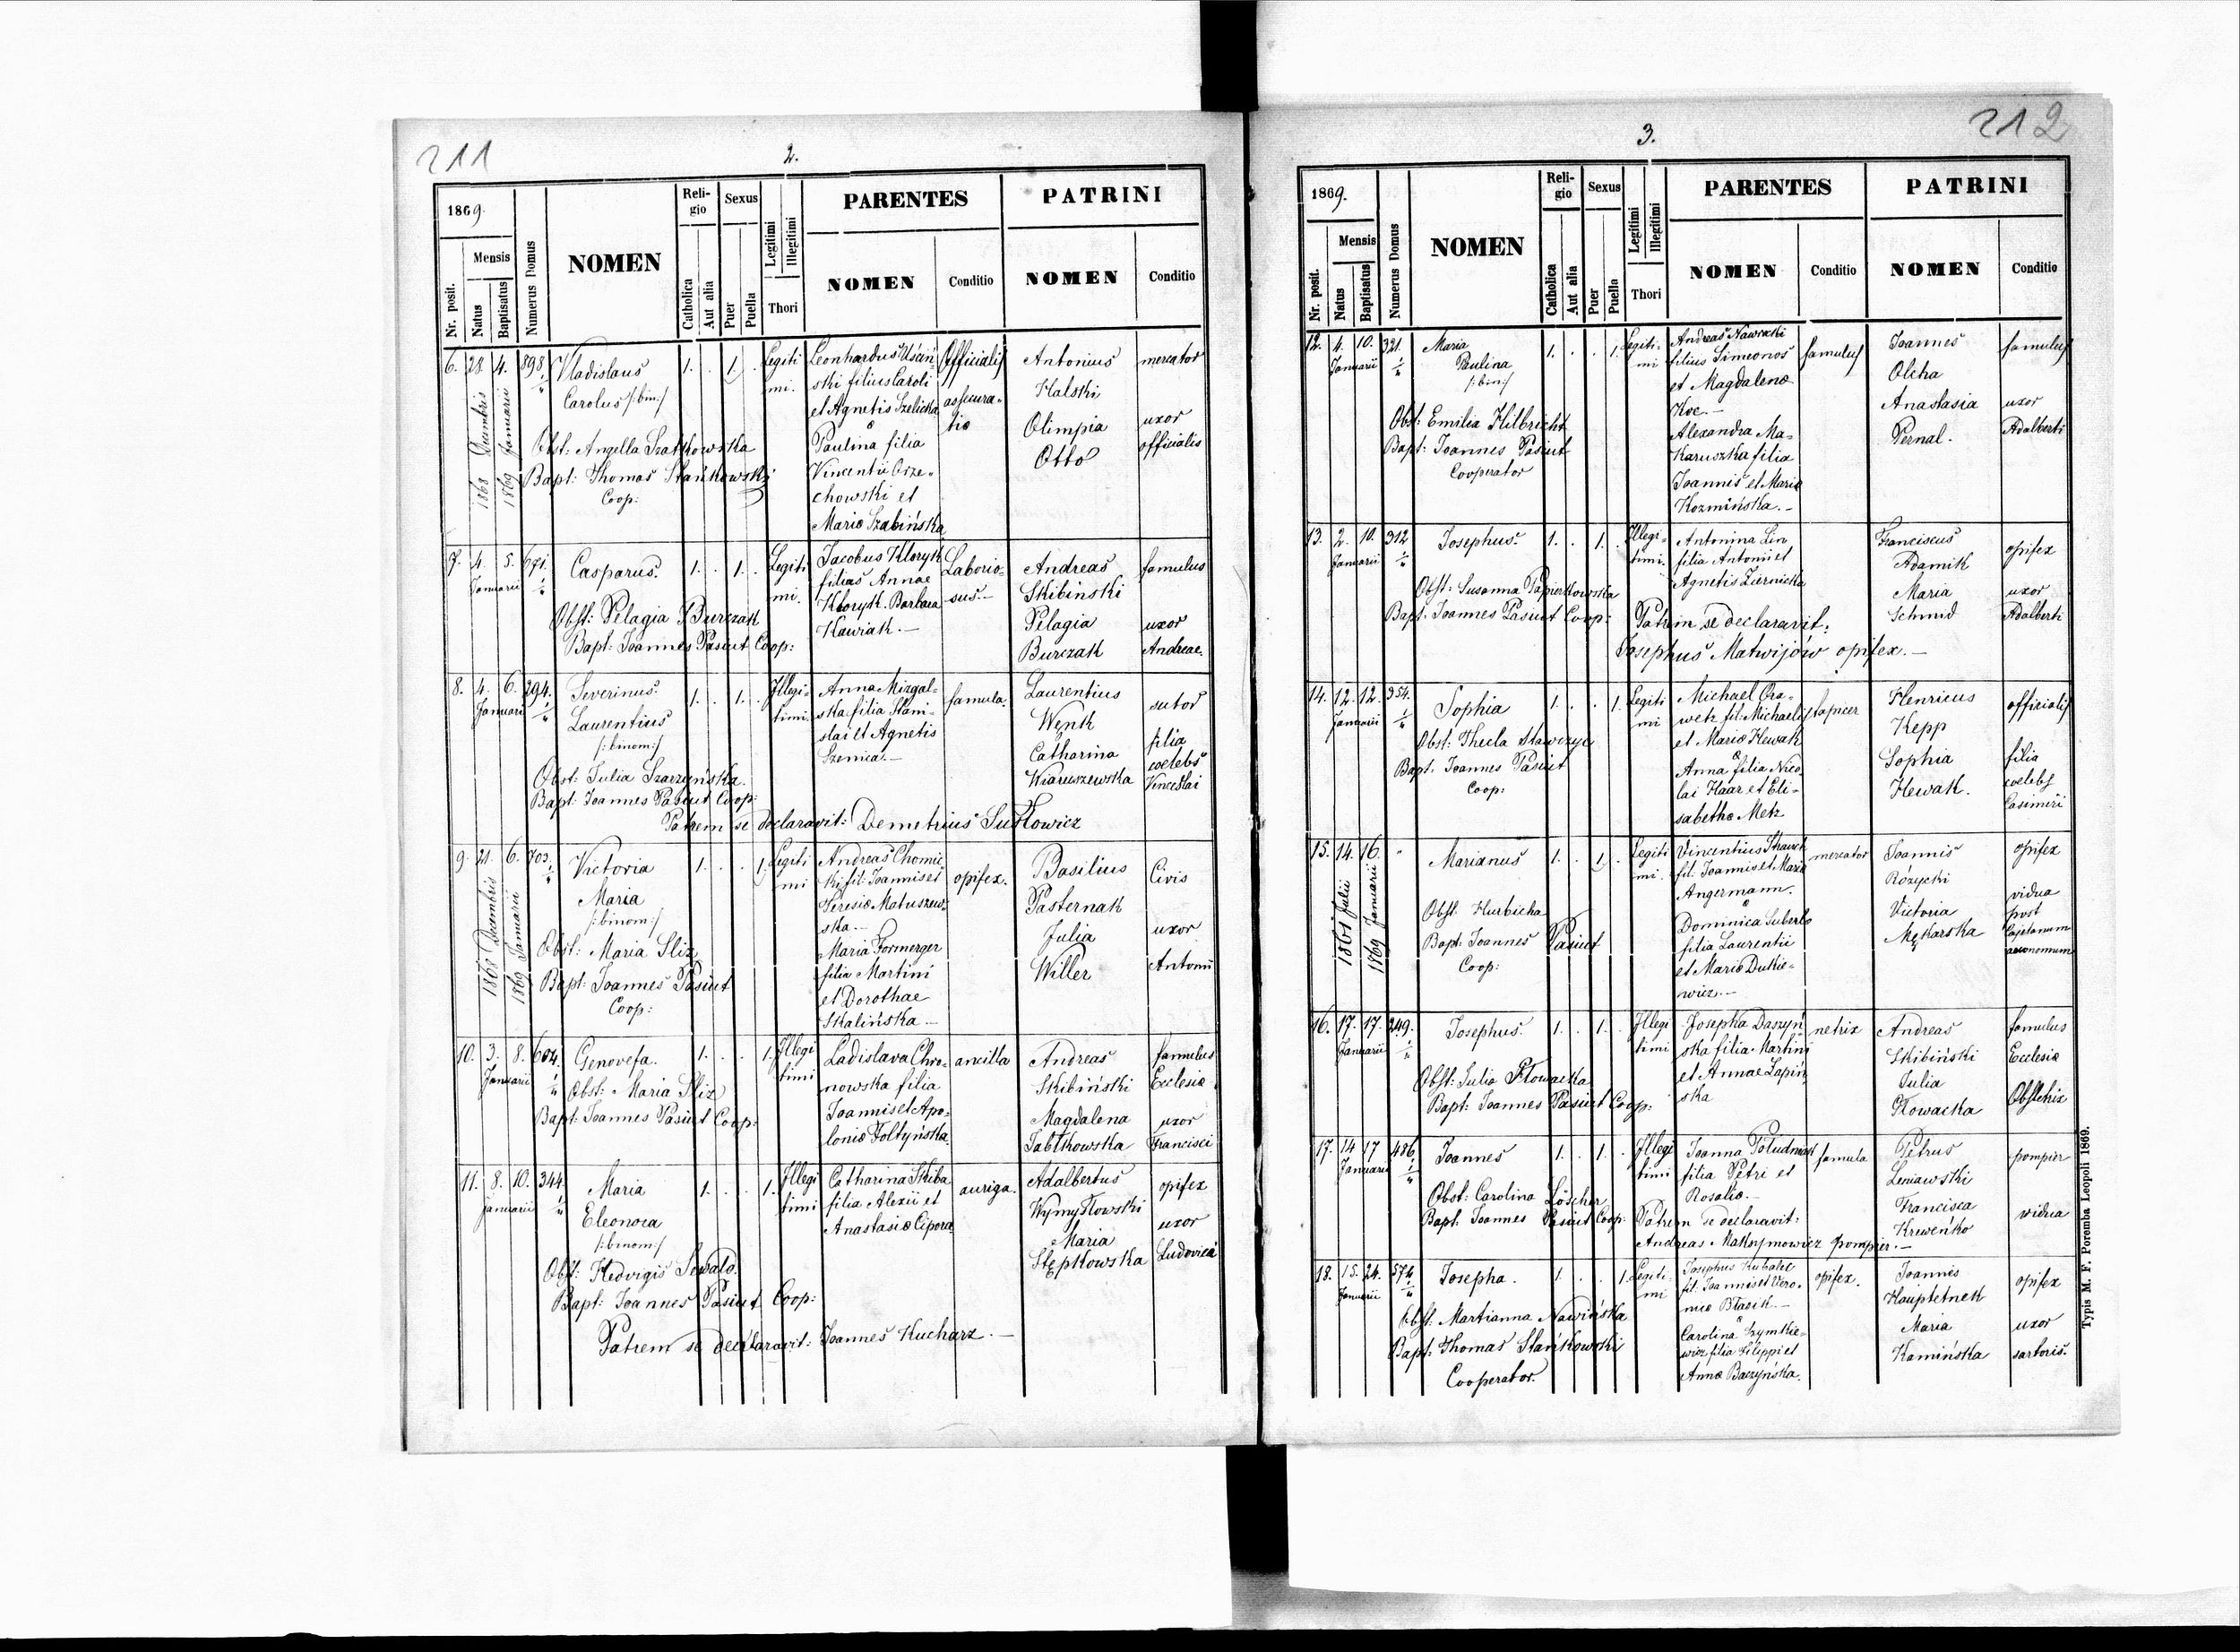 211
2.
1869.
Nr. posit.
Mensis
Natus
Baptisatus
Numerus Domus
NOMEN
Religio
Catholica
Aut alia
Sexus
Puer
Puella
Legitimi
Illegitimi
Thori
PARENTES
NOMEN
Conditio
PATRINI
NOMEN
Conditio
6. 28. 4. 898 1/4
1868 Decembris
1869 Januarii
Vladislaus
Carolus /:bin:/
Obst: Angella Szatkowska
Bapt: Thomas Stańkowski
Coop:
1. . 1. .
Legiti
mi.
Leonhardus Uściń
ski filius Caroli
et Agnetis Szelicka
Paulina filia
Vincentii Orze-
chowski et
Mariæ Szabińska
Officialis
assecura-
tio
Antonius
Halski
Olimpia
Otto
mercator
uxor
officialis
7. 4. 5. 671. 1/4
Januarii
Casparus.
Obst: Pelagia Burczak
Bapt: Joannes Pasiut Coop:
1. . 1. .
Legiti
mi.
Jacobus Kloryk
filius Annae
Kloryk. Barbara
Kawiak.—
Laborio-
sus.—
Andreas
Skibinski
Pelagia
Burczak
famulus
uxor
Andreae.
8. 4. 6. 294. 1/4
Januarii
Severinus.
Laurentius
/:binom:/
Obst: Julia Szarzyńska.
Bapt: Joannes Pasiut Coop:
Patrem se declaravit: Demetrius Susłowicz
1. . 1. .
Illegi-
timi.
Anna Mizgal-
ska filia Stani-
slai et Agnetis
Szenica.—
famula.
Laurentius
Wenk
Catharina
Kiaruszewska
sutor
filia
coelebs
Venceslai
9. 21. 6. 703. 1/4
1868 Decembris
1869 Januarii
Victoria
Maria
/:binom:/
Obst: Maria Sliz
Bapt: Joannes Pasiut
Coop:
1. . . 1.
Legiti
mi
Andreas Chomic
ki fil: Joannis et
Teresiæ Matuszew-
ska.—
Maria Formerger
filia Martini
et Dorothae
Skalińska—
opifex.
Basilius
Pasternak
Julia
Willer
Civis
uxor
Antonii
10. 3. 8. 604. 1/4
Januarii
Genovefa.
Obst: Maria Sliz
Bapt: Joannes Pasiut Coop:
1. . . 1.
Illegi
timi
Ladislava Chro-
nowska filia
Joannis et Apo-
loniæ Foltyńska.
ancilla
Andreas
Skibiński
Magdalena
Jabłkowska
famulus
Ecclesiæ
uxor
Francisci
11. 8. 10. 344. 1/4
Januarii
Maria
Eleonora
/:binom:/
Obst: Hedvigis
Bapt: Joannes Pasiut Coop:
Patrem se declaravit: Joannes Kucharz.—
1. . . 1.
Illegi
timi
Catharina Skiba
filia Alexii et
Anastasiæ Cipora
auriga.
Adalbertus
Wymysłowski
Maria
Stępkowska
opifex
uxor
Ludovici
3.
212
1869.
Nr. posit.
Mensis
Natus
Baptisatus
Numerus Domus
NOMEN
Religio
Catholica
Aut alia
Sexus
Puer
Puella
Legitimi
Illegitimi
Thori
PARENTES
NOMEN
Conditio
PATRINI
NOMEN
Conditio
12. 4. 10. 321. 1/4
Januarii
Maria
Paulina
/:bin:/
Obst: Emilia Hilbricht
Bapt: Joannes Pasiut
Cooperator
1. . . 1.
Legiti-
mi
Andreas Nawracki
filius Simeonis
et Magdalenæ
Koc.—
Alexandra Ma-
karuszka filia
Joannis et Mariæ
Kozmińska.—
famulus
Joannes
Olcha
Anastasia
Pernal.
famulus
uxor
Adalberti
13. 2. 10. 312 1/4
Januarii
Josephus.
Obst: Susanna Papierkowska
Bapt: Joannes Pasiut Coop:
1. . 1. .
Illegi-
timi.
Antonina Lin
filia Antonii et
Agnetis Ziernicka
Patrem se declaravit:
Josephus Matwijów opifex.—
Franciscus
Adamik
Maria
Schmid
opifex
uxor
Adalberti
14. 12. 12. 354. 1/4
Januarii
Sophia
Obst: Thecla Stawczyc
Bapt: Joannes Pasiut
Coop:
1. . . 1.
Legiti
mi
Michael Ora-
wetz fil: Michaelis
et Mariæ Hewak
Anna filia Nico
lai Haar et Eli-
sabethæ Metz
tapicer
Henricus
Kepp
Sophia
Hewak.
officialis
filia
coelebs
Casimiri
15. 14. 16. "
Julii
1869 Januarii
Marianus
Obst: Hurbicha
Bapt: Joannes Pasiut
Coop:
1. . 1. .
Legiti
mi.
Vincentius
fil: Joannis et Mariæ
Angermann.
Dominica Suberlo
filia Laurentii
et Mariæ Dutkie-
wicz.—
mercator
Joannis
Rózycki
Victoria
Mękarska
opifex
vidua
post
Cajetanum
oeconomum
16. 17. 17. 249. 1/4
Januarii
Josephus.
Obst: Julia Głowacka
Bapt: Joannes Pasiut Coop:
1. . 1. .
Illegi
timi
Josepha Daszyń
ska filia Martini
et Annae Lapiń
ska
netrix
Andreas
Skibiński
Julia
Głowacka
famulus
Ecclesiæ
Obstetrix
17. 14 17 486. 1/4
Januarii
Joannes
Obst: Carolina Löscher
Bapt: Joannes Pasiut Coop:
1. . 1. .
Illegi
timi
Joanna
filia Petri et
Rosaliæ.—
Patrem se declaravit:
Andreas Maksymowicz pompier.—
famula
Petrus
Leniawski
Francisca
Kreweńko
pompier
widua
18. 15. 24. 574 1/4
Januarii
Josepha.
Obst: Martianna Nawińska
Bapt: Thomas Stańkowski
Cooperator.
1. . . 1.
Legiti-
mi
Josephus Kubalec
fil: Joannis et Vero-
nicæ Błazik.—
Carolina Szymkie-
wicz filia Filippi et
Annæ Baczyńska.
opifex.
Joannes
Hauptetnek
Maria
Kamińska
opifex
uxor
sartoris.
Typis M. F. Poremba Leopoli 1869.